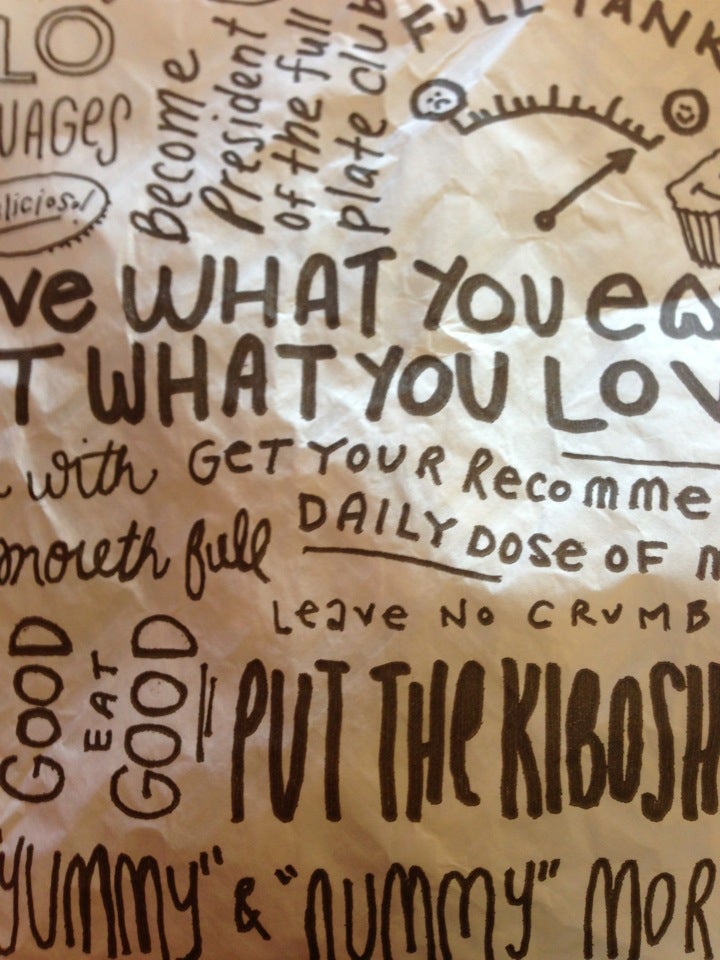 LO
UAGes
licioso!
Become
President
of the full
plate club
FULL TANK
ve WHAT YOU ea
T WHAT YOU LOV
with
mouth full
GeT YOUR Recomme
DAILY DOSe OF
Leave No CRUMB
GOOD
EAT
GOOD
PUT THe KIBOSH
"YUMMY" & "NUMMY" MOR